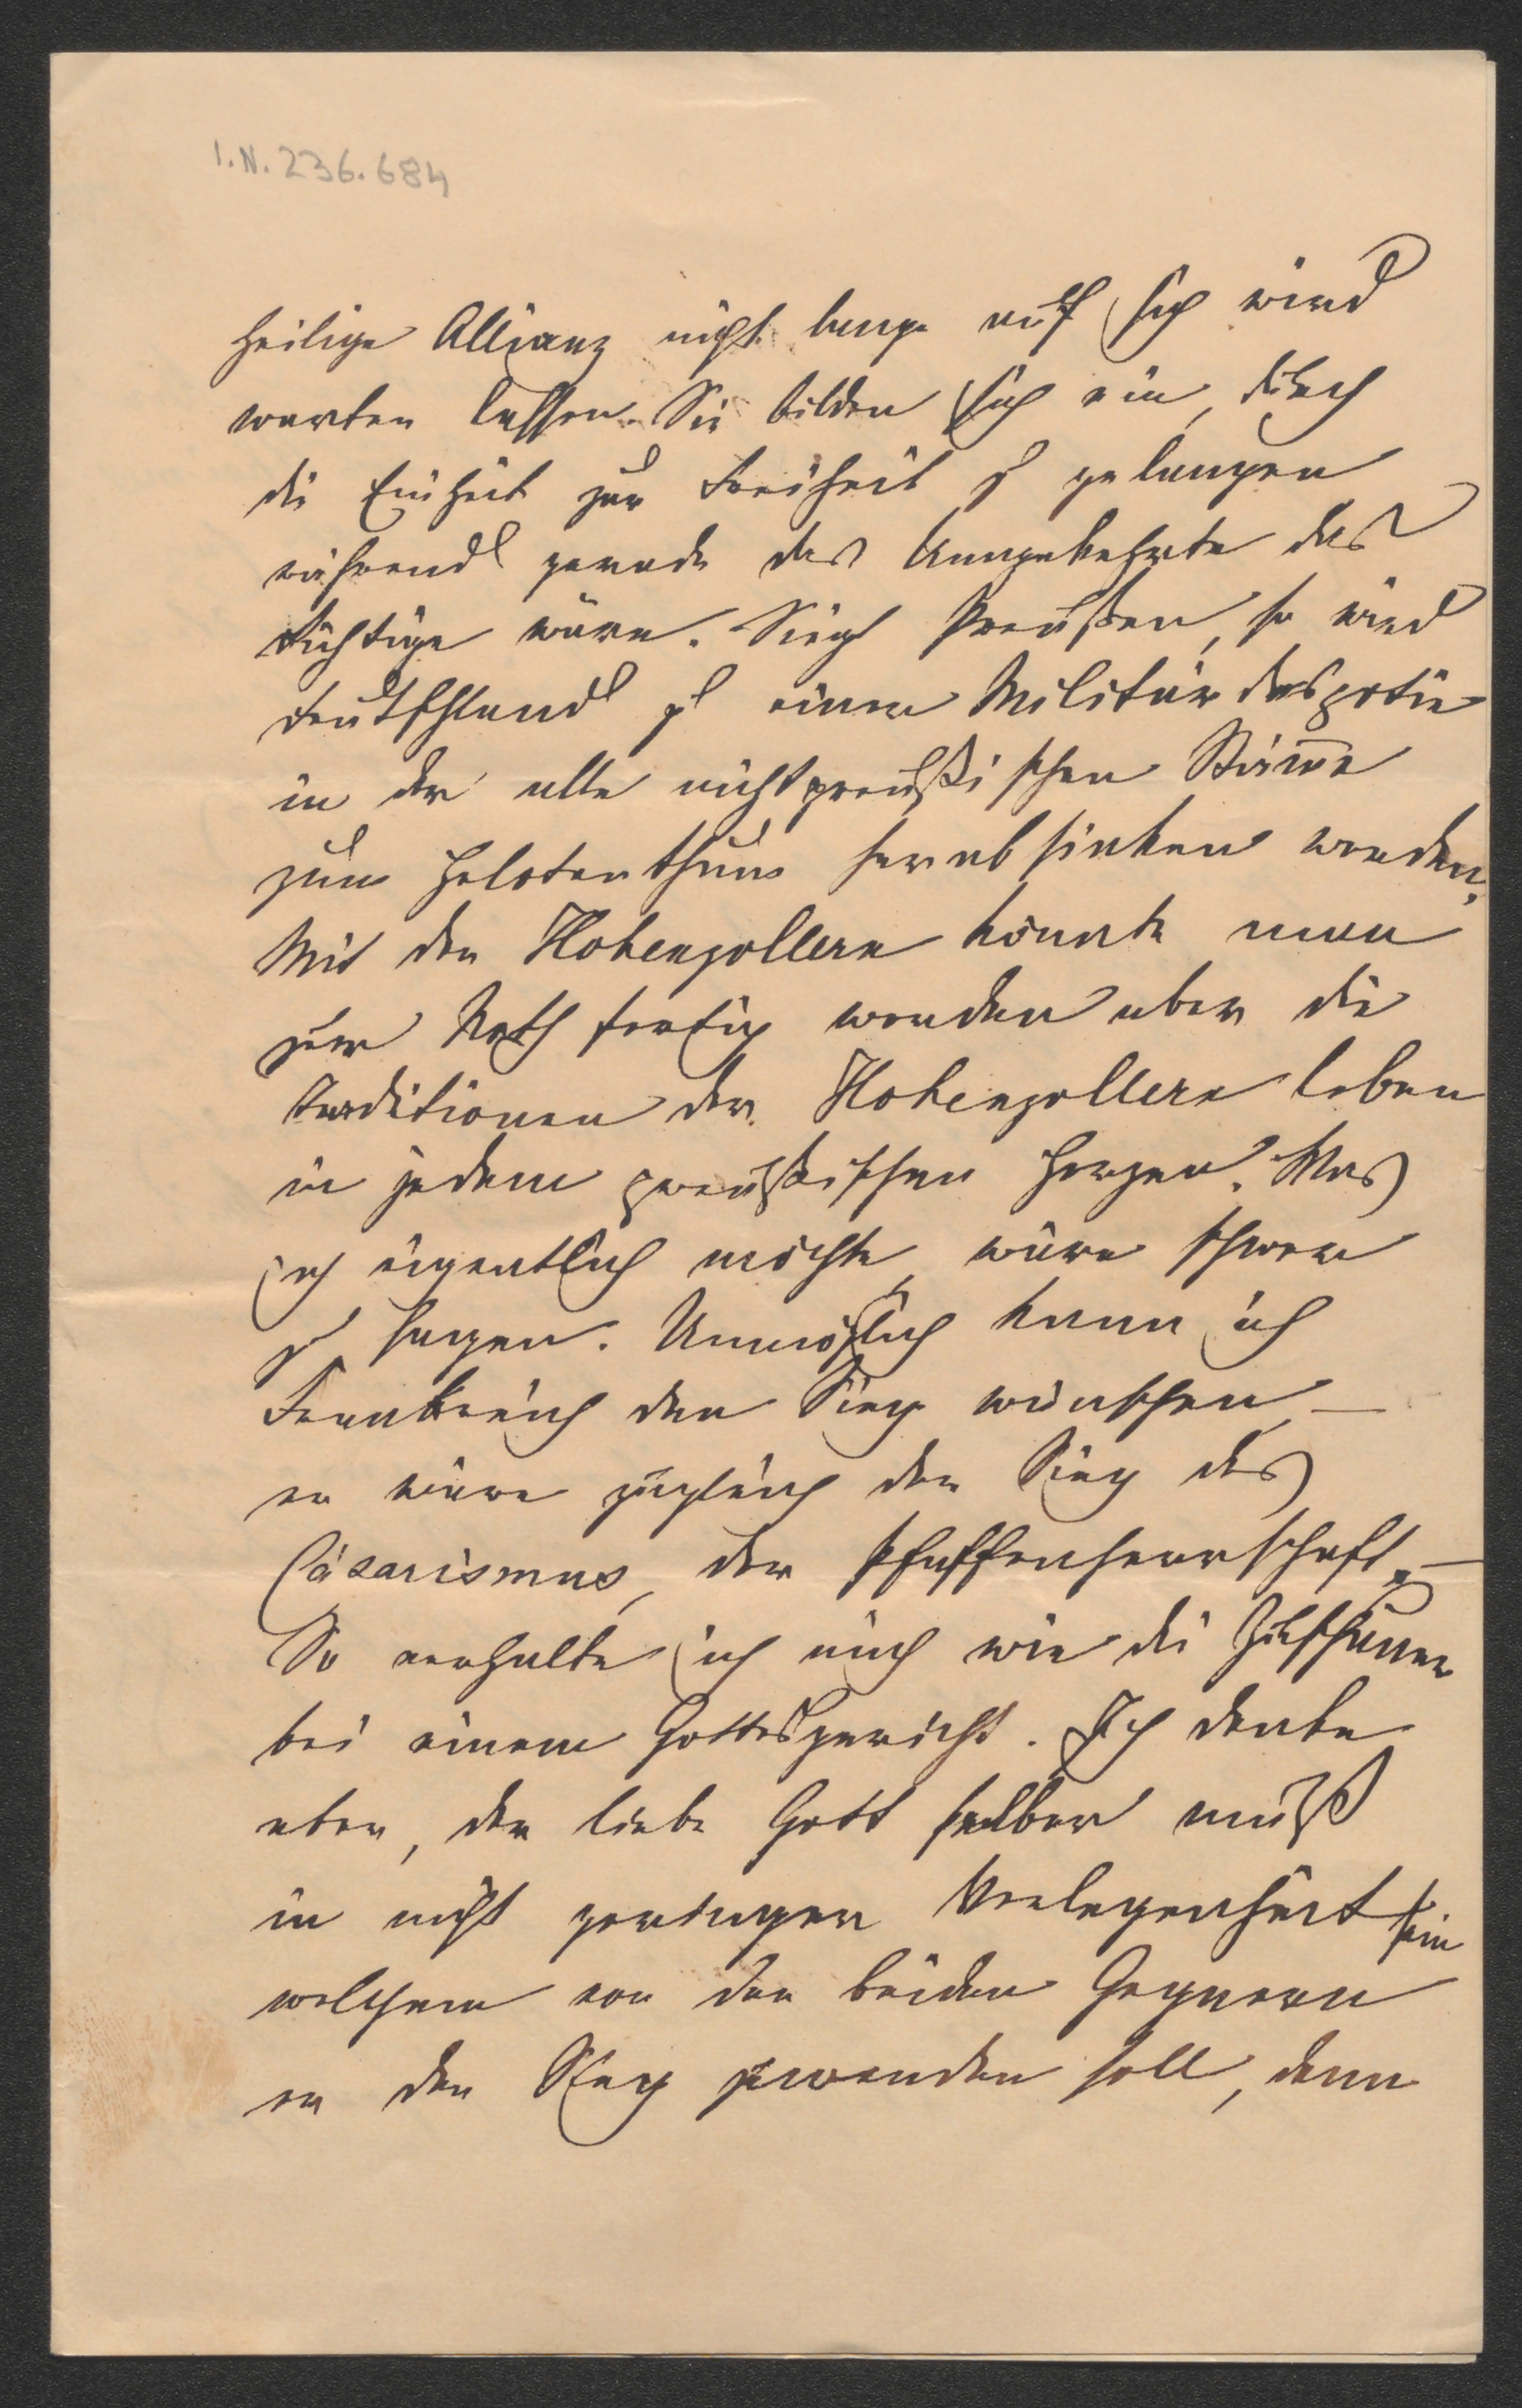 I.N. 236.684
heilige Allianz nicht lange auf sich wird
warten lassen. Sie bilden sich ein, durch
die Einheit zur Freiheit z' gelangen
während gerade das Umgekehrte das
Richtige wäre. Siegt Preußen, so wird
Deutschland z' einer Militärdespotie
in der alle nichtpreußischen Stäm̅e
zum Helotenthum herabsinken werden.
Mit den Hohenzollern könnte man
zur Noth fertig werden aber die
Traditionen der Hohenzollern leben
in jedem preußischen Herzen. Was
ich eigentlich möchte, wäre schwer
z' sagen. Unmöglich kann ich
Frankreich den Sieg wünschen –
er wäre zugleich der Sieg des
Cäsarismus, der Pfaffenherrschaft. –
So verhalte ich mich wie die Zuschauer
bei einem Gottesgericht. Ich denke
aber, der liebe Gott selber muß
in nicht geringer Verlegenheit sein
welchem von den beiden Gegnern
er den Sieg zuwenden soll, denn